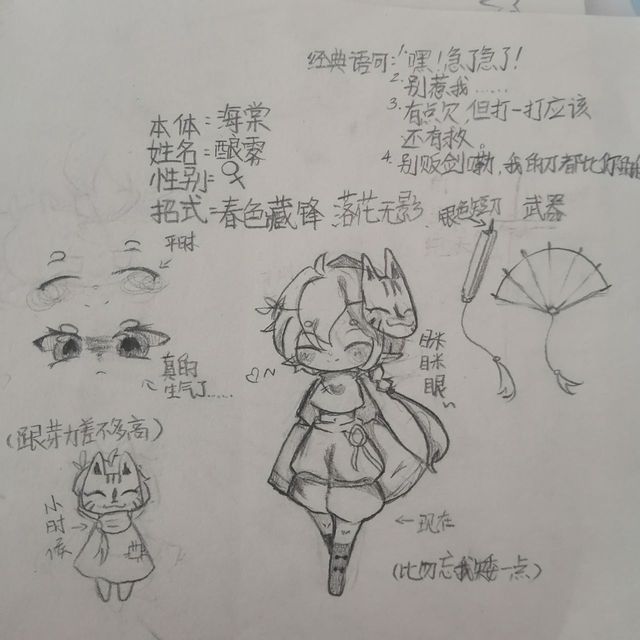 经典语句:1.嘿!急了急了!
2.别惹我……
3.有点欠,但打一打应该
还有救。
4.别贩剑
本体:海棠
姓名:酿雾
性别:♀
招式:春色藏锋 落花无影
银色短刀 武器
平时
真的
生气了……
眯
眯
眼
(跟芽力差不多高)
小
时
候
←现在
(比勿忘我矮一点)